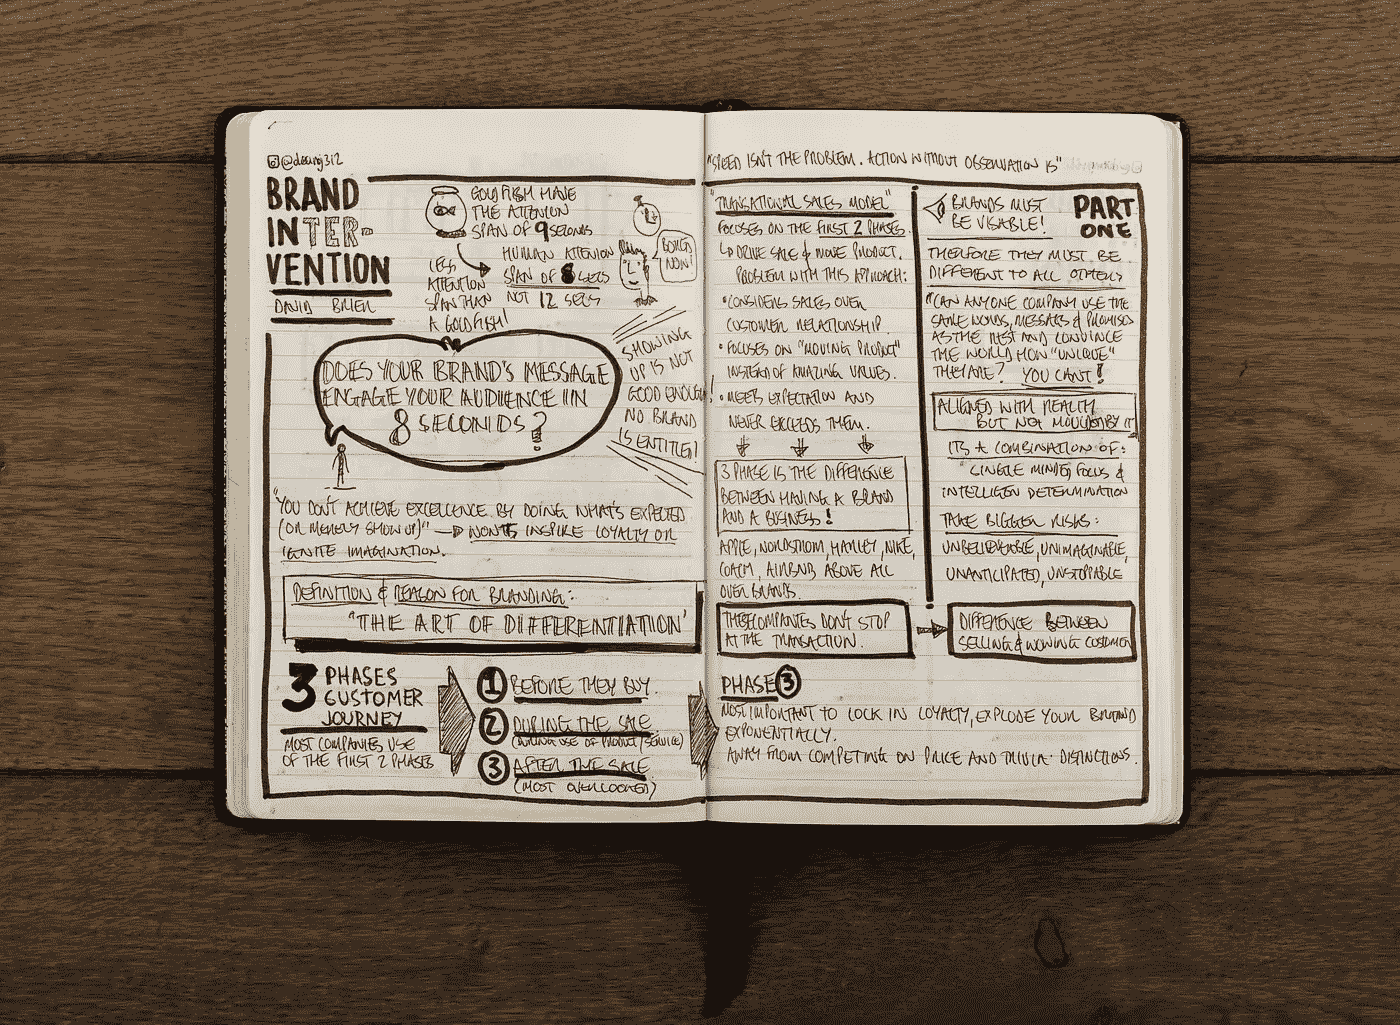 @dewng312
BRAND
INTER-
VENTION
DAVID BRIER
GOLDFISH HAVE
THE ATTENION
SPAN OF 9 SECONDS
HUMAN ATTENION
SPAN OF 8 SECS
NOT 12 SECS
LESS
ATTENTION
SPAN THAN
A GOLDFISH!
BORED
NOW!
DOES YOUR BRAND'S MESSAGE
ENGAGE YOUR AUDIENCE IN
8 SECONDS?
SHOWING
UP IS NOT
GOOD ENOUGH!
NO BRAND
IS ENTITLED!
"YOU DON'T ACHIEVE EXCELLENCE BY DOING WHAT'S EXPECTED
(OR MERELY SHOW UP)" → WON'T INSPIRE LOYALTY OR
IGNITE IMAGINATION.
DEFINITION & REASON FOR BRANDING:
"THE ART OF DIFFERENTIATION"
3 PHASES
CUSTOMER
JOURNEY
MOST COMPANIES USE
OF THE FIRST 2 PHASES
1 BEFORE THEY BUY
2 DURING THE SALE
(DURING USE OF PRODUCT/SERVICE)
3 AFTER THE SALE
(MOST OVERLOOKED)
"SPEED ISN'T THE PROBLEM. ACTION WITHOUT OBSERVATION IS"
"TRANSATIONAL SALES MODEL"
FOCUSES ON THE FIRST 2 PHASES.
↳ DRIVE SALE & MOVE PRODUCT.
PROBLEM WITH THIS APPROACH:
• CONSIDERS SALES OVER
CUSTOMER RELATIONSHIP.
• FOCUSES ON "MOVING PRODUCT"
INSTEAD OF AMAZING VALUES.
• MEETS EXPECTATION AND
NEVER EXCEEDS THEM.
3 PHASE IS THE DIFFERENCE
BETWEEN HAVING A BRAND
AND A BUSINESS!
APPLE, NORDSTROM, HARLEY, NIKE,
COACH, AIRBNB ABOVE ALL
OVER BRANDS.
THESE COMPANIES DON'T STOP
AT THE TRANSACTION.
BRANDS MUST
BE VISABLE!
PART
ONE
THEREFORE THEY MUST BE
DIFFERENT TO ALL OTHERS
"CAN ANYONE COMPANY USE THE
SAME WORDS, MESSAGES & PROMISES
AS THE REST AND CONVINCE
THE WORLD HOW "UNIQUE"
THEY ARE? YOU CAN'T!
ALIGNED WITH REALITY
BUT NOT MOULDED BY IT
ITS A COMBINATION OF:
SINGLE MINDED FOCUS &
INTELLIGEN DETERMINATION
TAKE BIGGER RISKS:
UNBELIEVEABLE, UNIMAGINABLE,
UNANTICIPATED, UNSTOPPABLE
DIFFERENCE BETWEEN
SELLING & WOWING CUSTOMER
PHASE 3
MOST IMPORTANT TO LOCK IN LOYALTY, EXPLODE YOUR BRAND
EXPONENTIALLY.
AWAY FROM COMPETING ON PRICE AND TRIVIAL DISTINCTIONS.